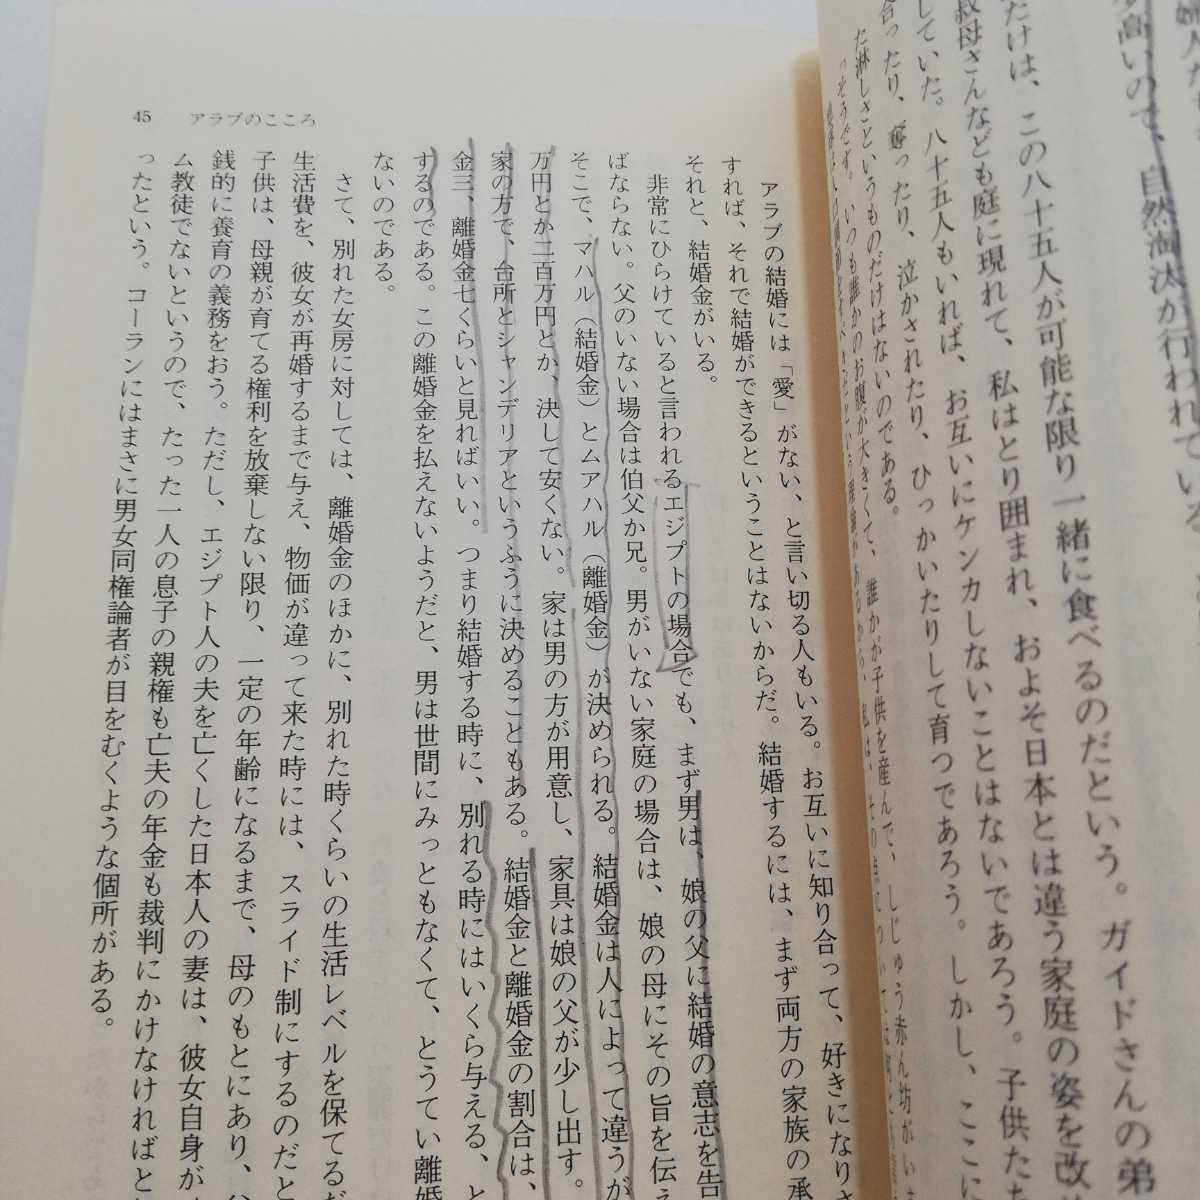 婦人な
が高いので、自然淘汰が行われている
だけは、この八十五人が可能な限り一緒に食べるのだという。ガイドさんの弟
叔母さんなども庭に現れて、私はとり囲まれ、およそ日本とは違う家庭の姿を改
していた。八十五人もいれば、お互いにケンカしないことはないであろう。子供たち
合ったり、奪ったり、泣かされたり、ひっかいたりして育つであろう。しかし、ここに
た淋しさというものだけはないのである。
「そうです。いつも誰かのお腹が大きくて、誰かが子供を産んで、しじゅう赤ん坊がい
アラブの結婚には「愛」がない、と言い切る人もいる。お互いに知り合って、好きになりさ
すれば、それで結婚ができるということはないからだ。結婚するには、まず両方の家族の承
それと、結婚金がいる。
非常にひらけていると言われるエジプトの場合でも、まず男は、娘の父に結婚の意志を告
ばならない。父のいない場合は伯父か兄。男がいない家庭の場合は、娘の母にその旨を伝え
そこで、マハル（結婚金）とムアハル（離婚金）が決められる。結婚金は人によって違うが
万円とか二百万円とか、決して安くない。家は男の方が用意し、家具は娘の父が少し出す。
家の方で、台所とシャンデリアというふうに決めることもある。結婚金と離婚金の割合は、
金三、離婚金七くらいと見ればいい。つまり結婚する時に、別れる時にはいくら与える、と
するのである。この離婚金を払えないようだと、男は世間にみっともなくて、とうてい離婚
ないのである。
さて、別れた女房に対しては、離婚金のほかに、別れた時くらいの生活レベルを保てるだ
生活費を、彼女が再婚するまで与え、物価が違って来た時には、スライド制にするのだと
子供は、母親が育てる権利を放棄しない限り、一定の年齢になるまで、母のもとにあり、
銭的に養育の義務をおう。ただし、エジプト人の夫を亡くした日本人の妻は、彼女自身が
ム教徒でないというので、たった一人の息子の親権も亡夫の年金も裁判にかけなければと
ったという。コーランにはまさに男女同権論者が目をむくような個所がある。
45 アラブのこころ